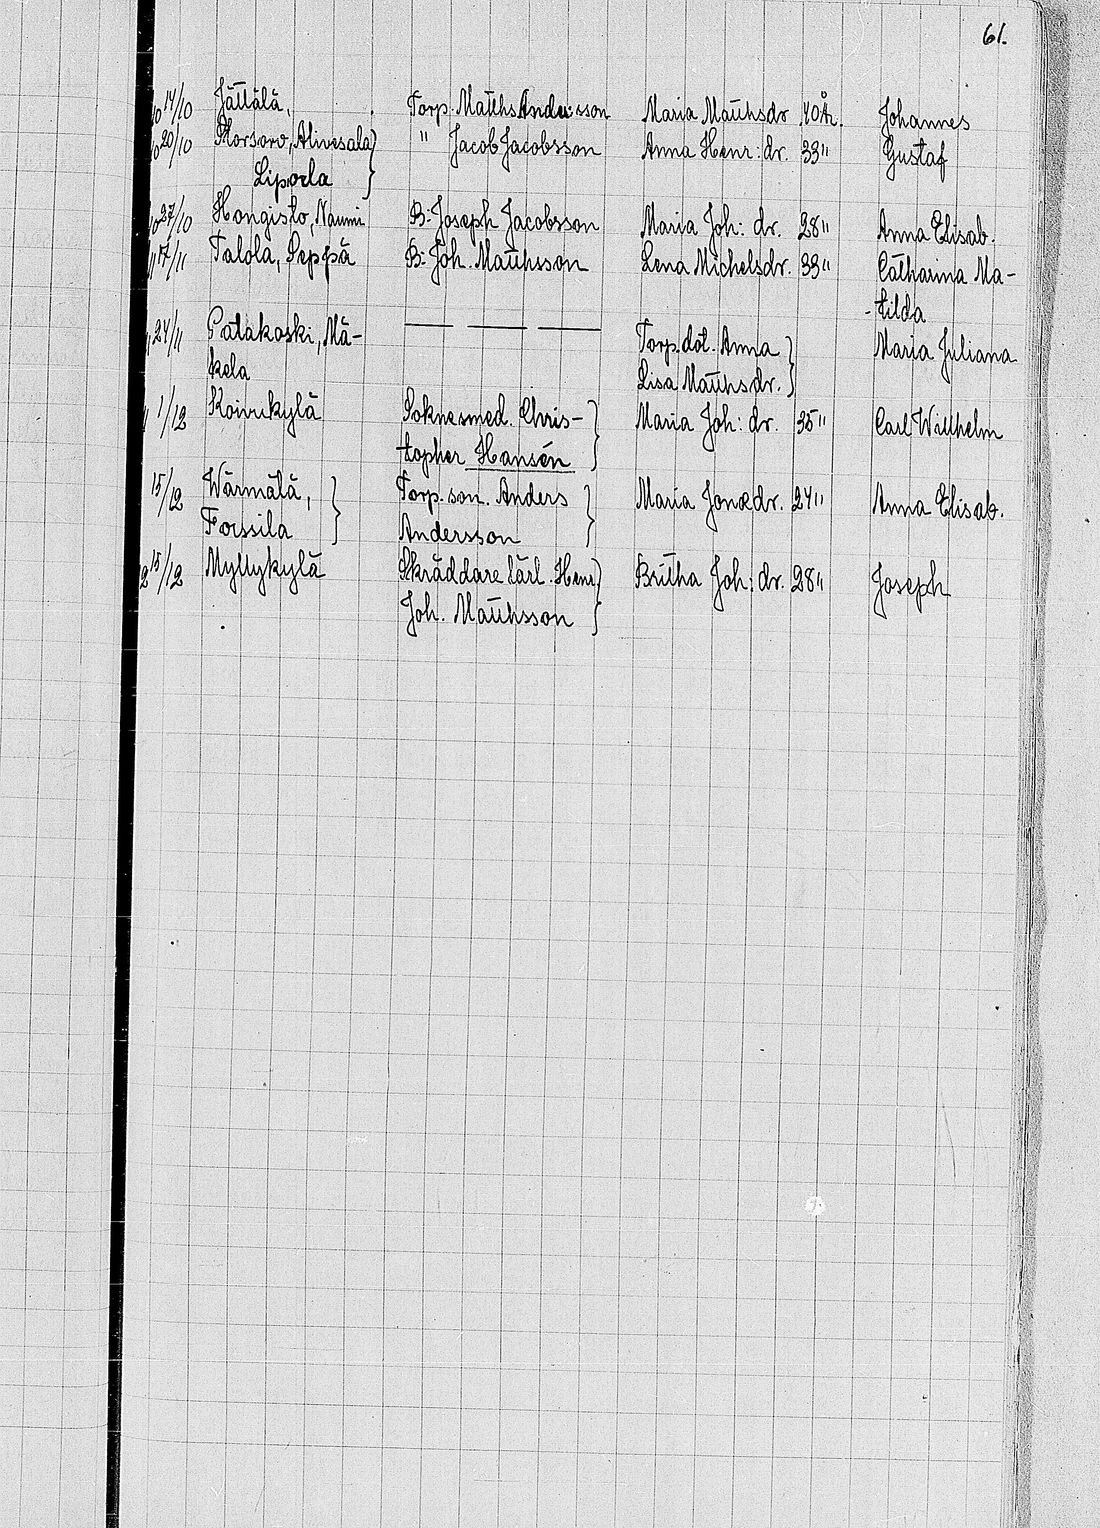 61.
14/10 Jättälä, Torp. Matths Andersson Maria Matthsdr. 40 År. Johannes
20/10 Storsaro, Alivesala " Jacob Jacobsson Anna Henr: dr. 33 " Gustaf
Lipoela
27/10 Hongisto, Naumi B: Joseph Jacobsson Maria Joh: dr. 28 " Anna Elisab.
17/11 Talola, Seppä B: Joh. Matthsson Lena Michelsdr. 33 " Catharina Ma-
-tilda
24/11 Patakoski, Mä- — — — Torp. dot. Anna Maria Juliana
kela Lisa Matthsdr.
1/12 Koivukylä Soknesmed. Chris- Maria Joh: dr. 35 " Carl Willhelm
topher Hansén
15/12 Wärmälä, Torp. son. Anders Maria Jonædr. 24 " Anna Elisab.
Forssila Andersson
15/12 Myllykylä Skräddare lärl. Henr Britha Joh: dr. 28 " Joseph
Joh. Matthsson